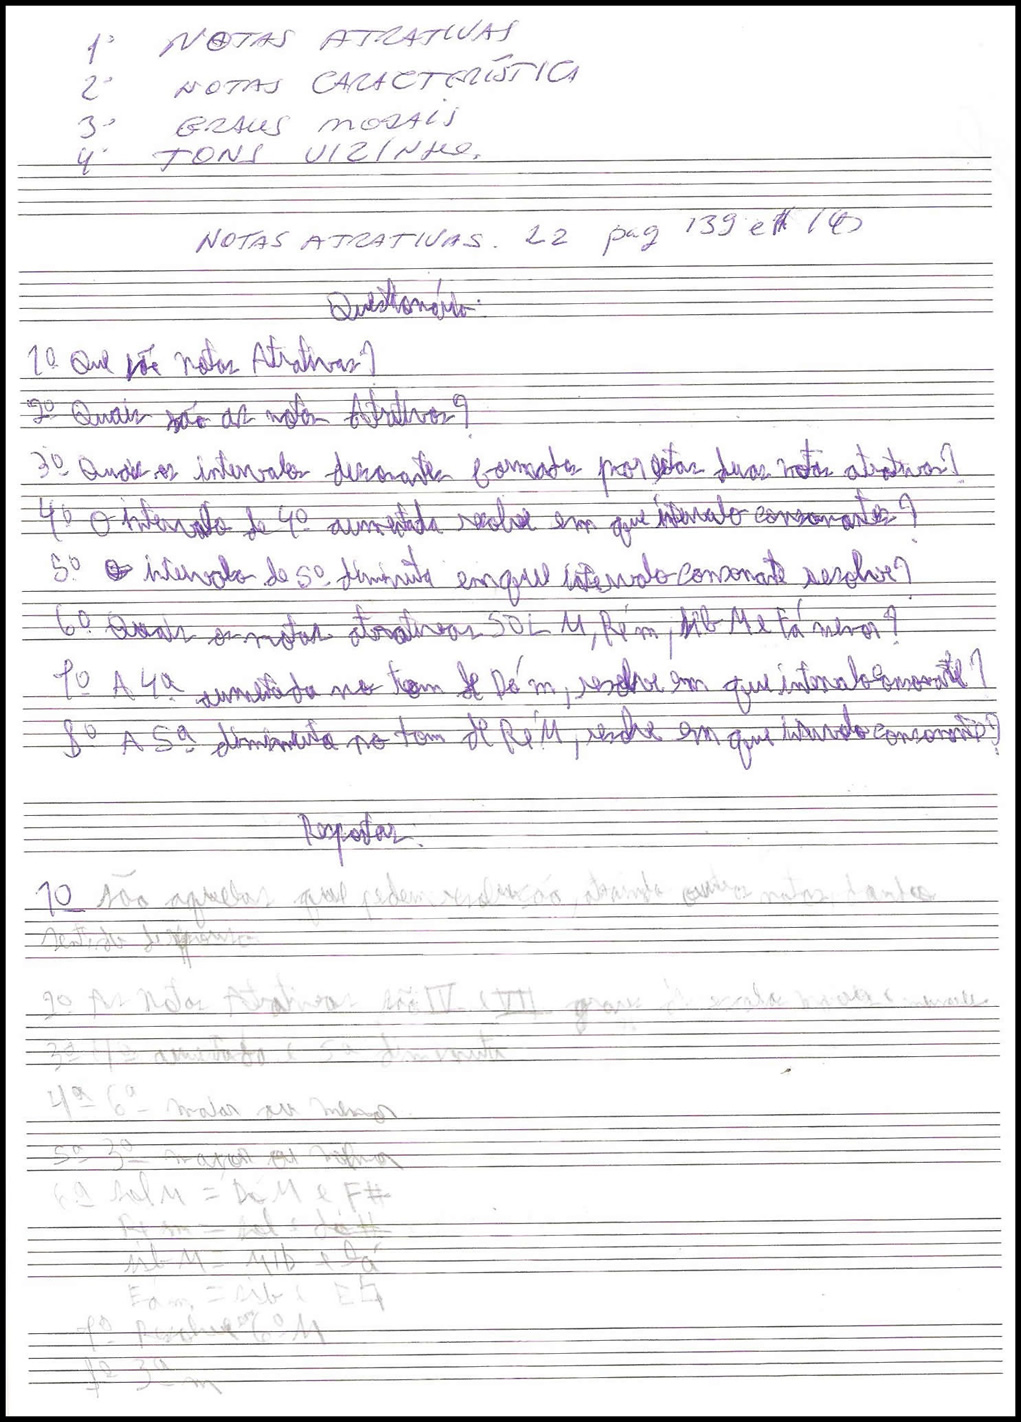 1º NOTAS ATRATIVAS
2º NOTAS CARACTERÍSTICA
3º GRAUS MODAIS
4º TONS VIZINHO.
NOTAS ATRATIVAS. 22 pag 139 et
Questionário.
1º Que são notas Atrativas?
2º Quais são as notas Atrativas?
3º Quais os intervalos dissonantes formados por estas duas notas atrativas?
4º O intervalo de 4º aumentada resolve em que intervalo consonantes?
5º O intervalo de 5º diminuta em que intervalo consonante resolve?
6º Quais as notas atrativas SOL M, Ré m, Sib M e Fá menor?
7º A 4ª aumentada no tom de Dó m, resolve em que intervalo consonante?
8º A 5ª diminuta no tom de Ré M, resolve em que intervalo consonante?
Respostas.
1º São aquelas que pedem resolução, notas
sentido
2º As Notas Atrativas são IV e VII graus
3ª 4ª aumentada e 5ª diminuta
4ª 6ª maior ou menor.
5ª 3ª maior ou menor
6ª Sol M = Dó M e F#
Ré m = sol e dó#
sib M = Mib e Lá
Fá m = sib e
7ª Resolve em 6º M
8ª 3ª m